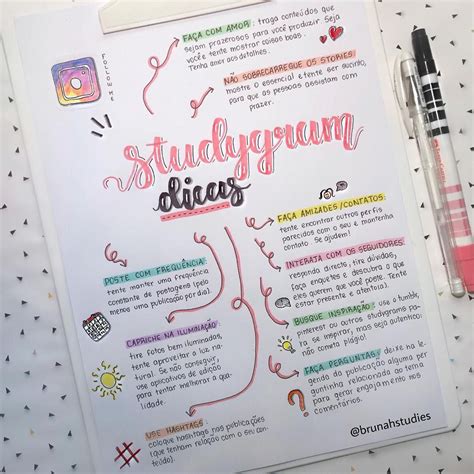 FOLLOW ME
FAÇA COM AMOR: traga conteúdos que
sejam prazerosos para você produzir. Seja
você e tente mostrar coisas boas.
Tenha amor aos detalhes.
NÃO SOBRECARREGUE OS STORIES
mostre o essencial e tente ser sucinto,
para que as pessoas assistam com
prazer.
studygram
dicas
FAÇA AMIZADES/CONTATOS:
tente encontrar outros perfis
parecidos com o seu e mantenha
contato. Se ajudem!
INTERAJA COM OS SEGUIDORES:
responda directs, tire dúvidas,
faça enquetes e descubra o que
eles querem que você poste. Tente
estar presente e aberto(a).
BUSQUE INSPIRAÇÃO: use o tumblr,
pinterest ou outros studygrams pa-
ra se inspirar, mas seja autêntico:
não cometa plágio!
FAÇA PERGUNTAS: deixe na le-
genda da publicação alguma per-
guntinha relacionada ao tema
para gerar engajamento nos
comentários.
POSTE COM FREQUÊNCIA:
tente manter uma frequência
constante de postagens (pelo
menos uma publicação por dia).
CAPRICHE NA ILUMINAÇÃO:
tire fotos bem iluminadas,
tente aproveitar a luz na-
tural. Se não conseguir, use
aplicativos de edição
para tentar melhorar a qua-
lidade.
USE HASHTAGS:
coloque hashtags nas publicações
(que tenham relação com o seu con-
teúdo).
@brunahstudies